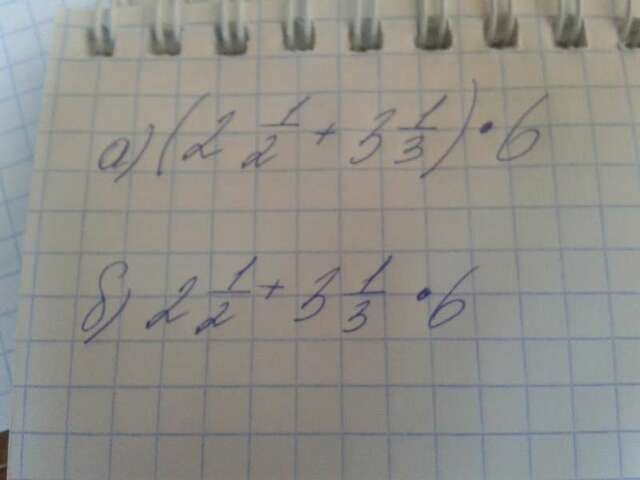 а) (2 1/2 + 3 1/3) · 6
б) 2 1/2 + 3 1/3 · 6